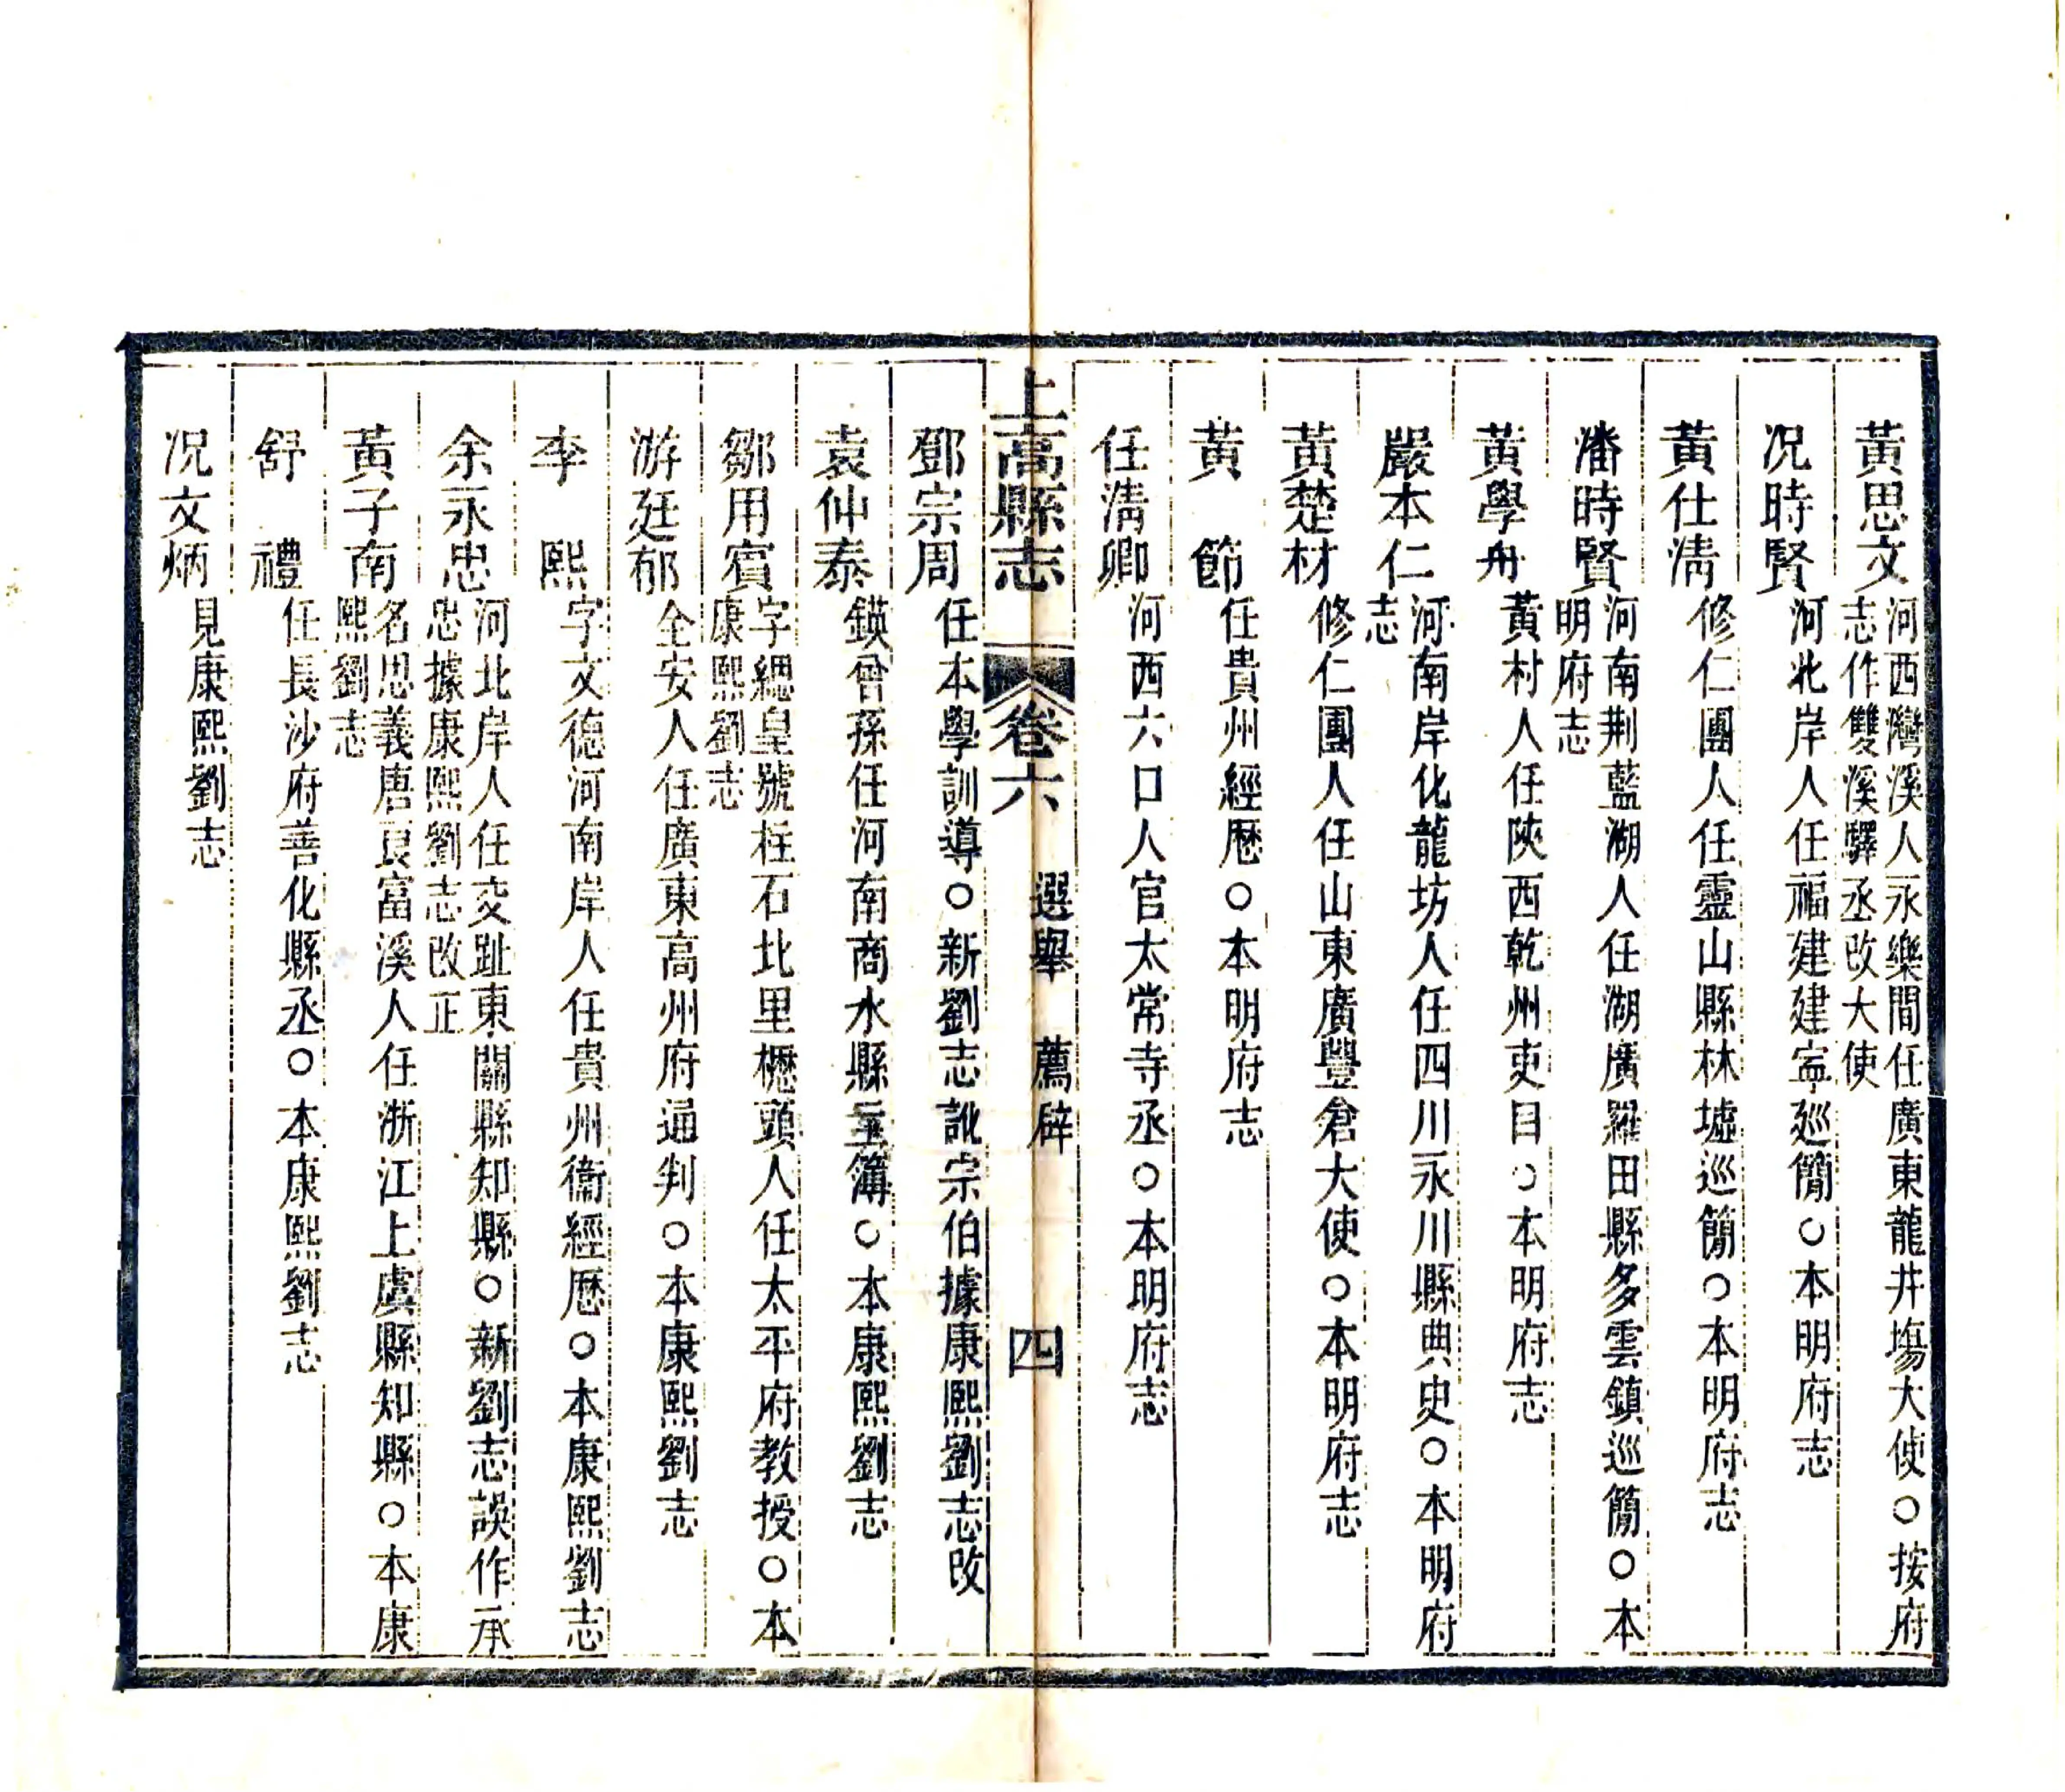 黃思文河西灣溪人永樂間任廣東龍井塲大使○按府
志作雙溪驛丞改大使
况時賢河北岸人任福建建寧廵簡○本明府志
黃仕淸修仁團人任靈山縣林墟巡簡○本明府志
潘時賢河南荆藍湖人任湖廣羅田縣多雲鎮巡簡○本
明府志
黃學舟黃村人任陝西乾州吏目○本明府志
嚴本仁河南岸化龍坊人任四川永川縣典史○本明府
志
黃楚材修仁團人任山東廣豐倉大使○本明府志
黃節任貴州經歷○本明府志
任淸卿河西六口人官太常寺丞○本明府志
上高縣志 卷六 選舉 薦辟 四
鄧宗周任本學訓導○新劉志訛宗伯據康熙劉志改
袁仲泰鍈曾孫任河南商水縣主簿○本康熙劉志
鄒用賓字緫皇號柱石北里櫪頭人任太平府教授○本
康熙劉志
游廷郁全安人任廣東高州府通判○本康熙劉志
李熙字文德河南岸人任貴州衞經歷○本康熙劉志
余永忠河北岸人任交趾東關縣知縣○新劉志誤作承
忠據康熙劉志改正
黃子南名思義唐良富溪人任浙江上虞縣知縣○本康
熙劉志
舒禮任長沙府善化縣丞○本康熙劉志
况文炳見康熙劉志